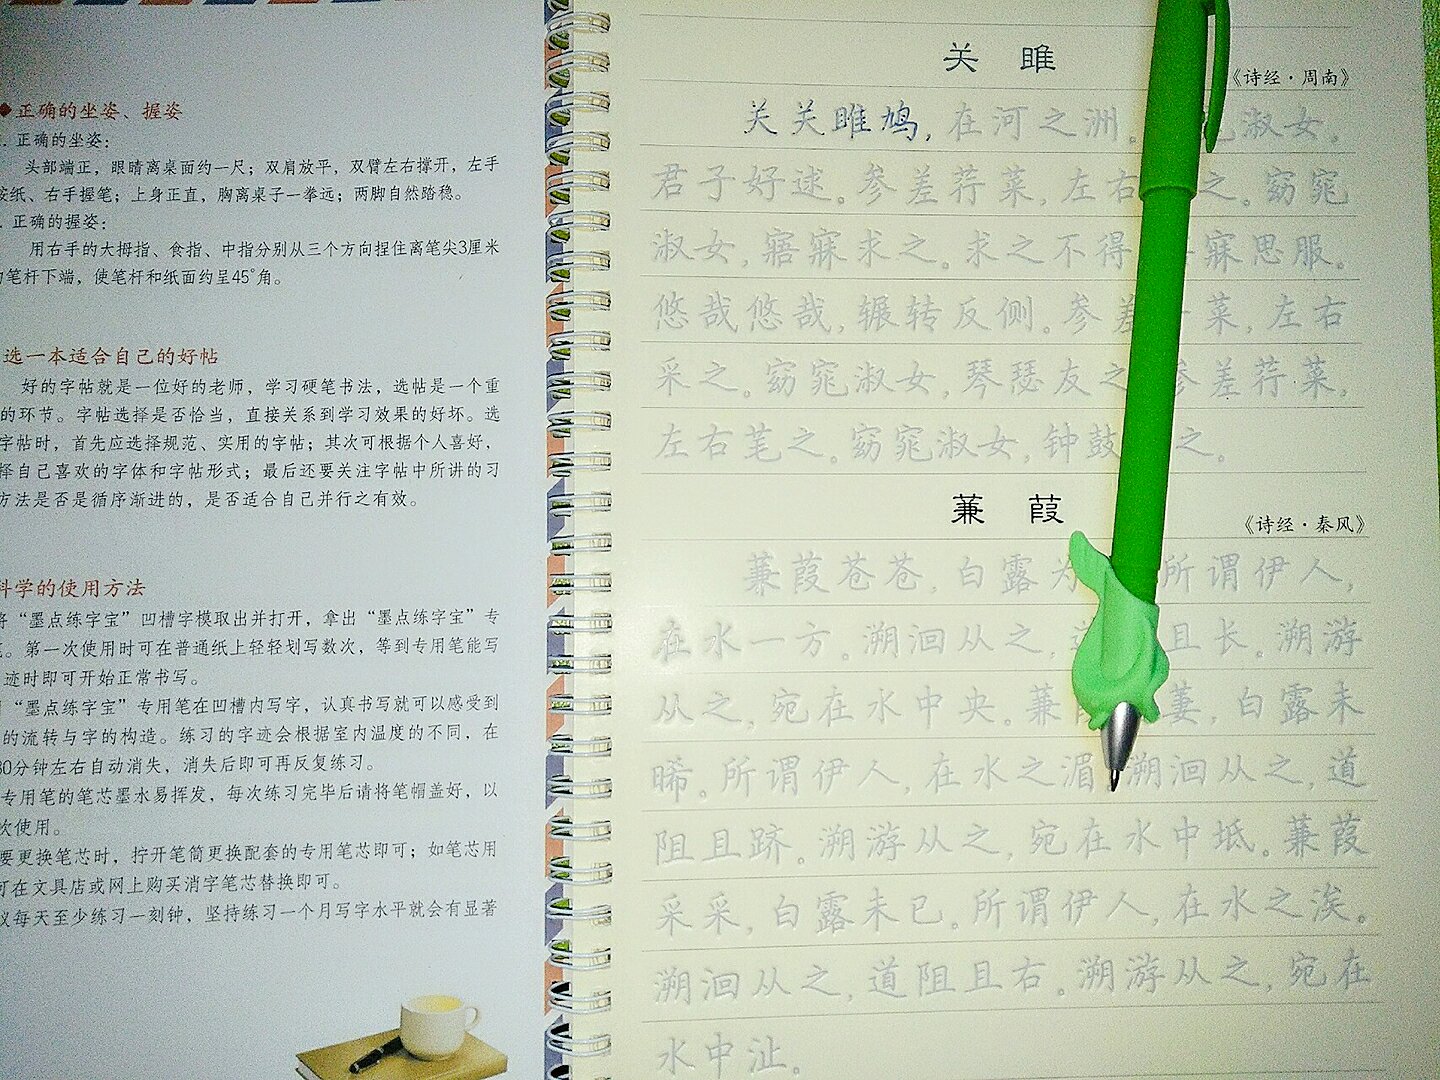 正确的坐姿、握姿
. 正确的坐姿：
头部端正，眼睛离桌面约一尺；双肩放平，双臂左右撑开，左手
按纸、右手握笔；上身正直，胸离桌子一拳远；两脚自然踏稳。
. 正确的握姿：
用右手的大拇指、食指、中指分别从三个方向捏住离笔尖3厘米
的笔杆下端，使笔杆和纸面约呈45°角。
选一本适合自己的好帖
好的字帖就是一位好的老师，学习硬笔书法，选帖是一个重
的环节。字帖选择是否恰当，直接关系到学习效果的好坏。选
字帖时，首先应选择规范、实用的字帖；其次可根据个人喜好，
择自己喜欢的字体和字帖形式；最后还要关注字帖中所讲的习
方法是否是循序渐进的，是否适合自己并行之有效。
科学的使用方法
将“墨点练字宝”凹槽字模取出并打开，拿出“墨点练字宝”专
。第一次使用时可在普通纸上轻轻划写数次，等到专用笔能写
迹时即可开始正常书写。
“墨点练字宝”专用笔在凹槽内写字，认真书写就可以感受到
的流转与字的构造。练习的字迹会根据室内温度的不同，在
30分钟左右自动消失，消失后即可再反复练习。
专用笔的笔芯墨水易挥发，每次练习完毕后请将笔帽盖好，以
次使用。
要更换笔芯时，拧开笔筒更换配套的专用笔芯即可；如笔芯用
可在文具店或网上购买消字笔芯替换即可。
议每天至少练习一刻钟，坚持练习一个月写字水平就会有显著
关 雎
《诗经·周南》
关关雎鸠，在河之洲。 淑女，
君子好逑。参差荇菜，左右 之。窈窕
淑女，寤寐求之。求之不得 寐思服。
悠哉悠哉，辗转反侧。参差 菜，左右
采之。窈窕淑女，琴瑟友之 参差荇菜，
左右芼之。窈窕淑女，钟鼓 之。
蒹 葭
《诗经·秦风》
蒹葭苍苍，白露为 所谓伊人，
在水一方。溯洄从之，道 且长。溯游
从之，宛在水中央。蒹葭 萋，白露未
晞。所谓伊人，在水之湄 溯洄从之，道
阻且跻。溯游从之，宛在水中坻。蒹葭
采采，白露未已。所谓伊人，在水之涘。
溯洄从之，道阻且右。溯游从之，宛在
水中沚。